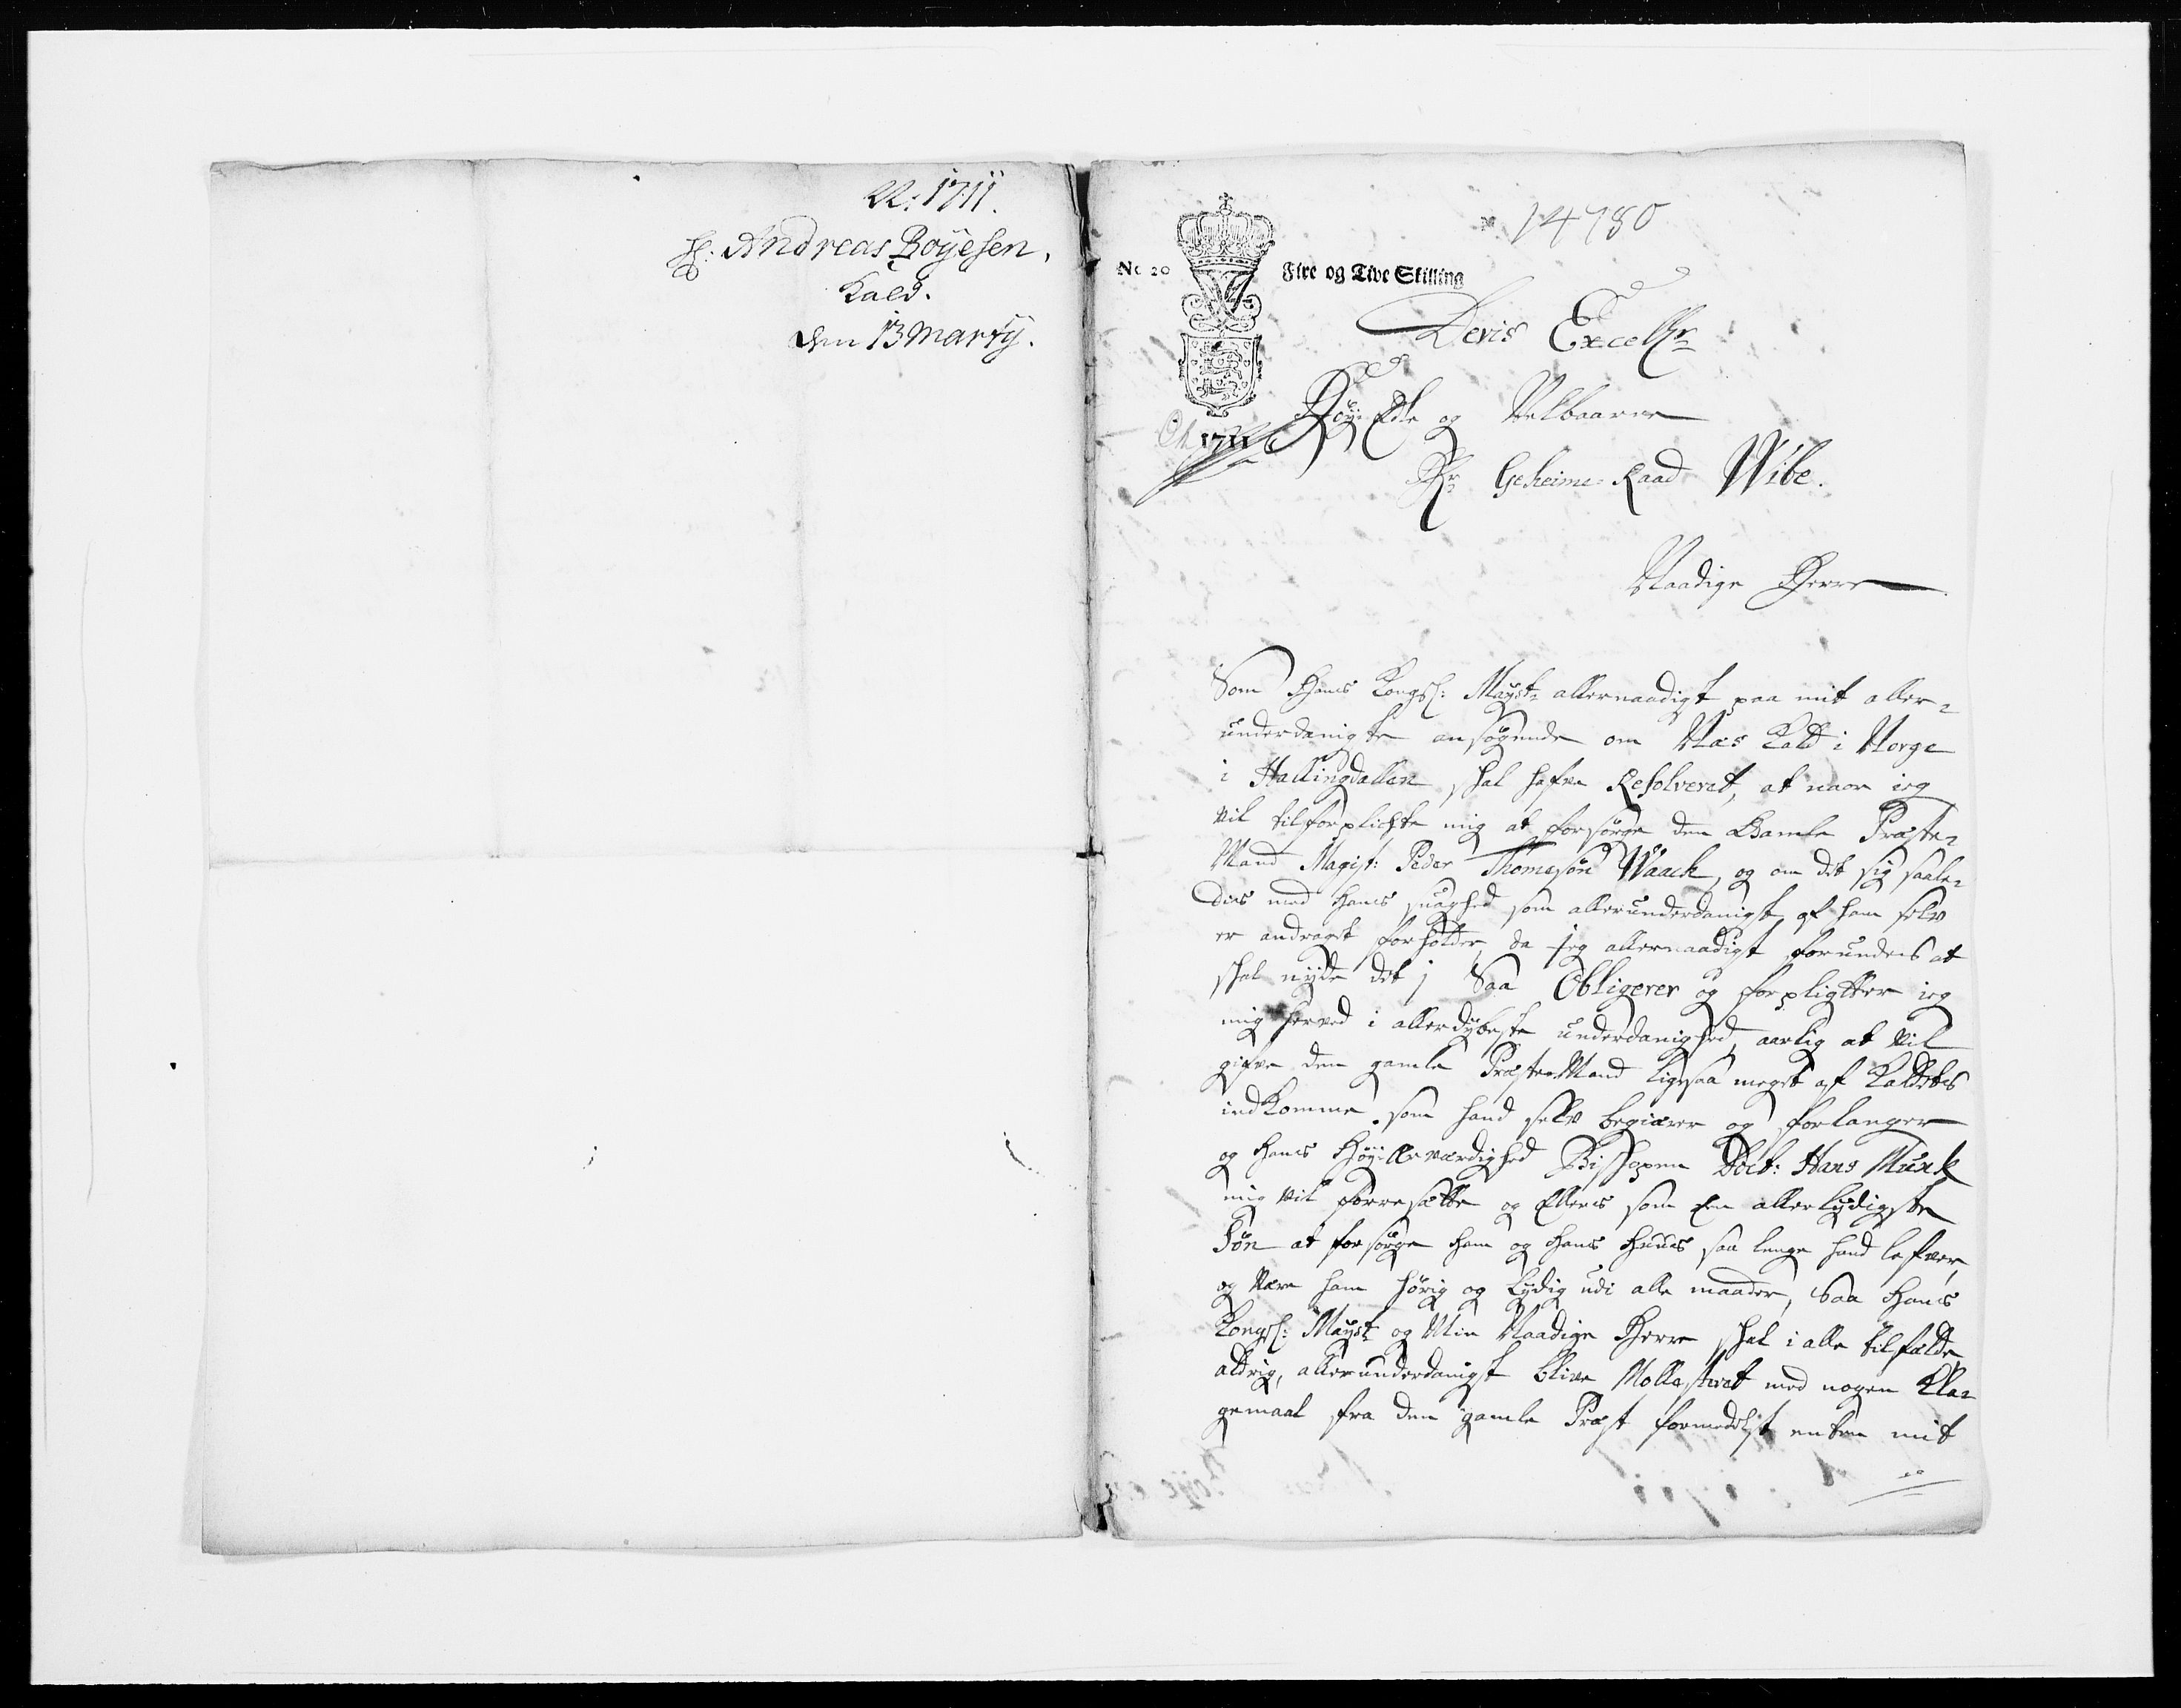 1711.
Hr: Andreas Boÿesen.
Kald.
den 13 Martÿ.
14780
No 20
Fire og Tive Skilling
Deris Excell:
Høy Edle og Velbaarne
1711
Hr Geheime-Raad Wibe.
Naadige Herre
Som Hans Kongl: Mayst: allernaadigst paa mit aller-
underdanigste ansøgende om Næs Kald i Norge
i Hallingdallen skal hafve Resolveret, at naar jeg
vil tilforplichte mig at forsørge den Gamle Præste-
Mand Magist: Peder Thomesøn Waack, og om det sig saale-
dis med hans suaghed som allerunderdanigst af ham selv
er andraget forholder, da jeg allernaadigst forundes at
skal nyde det; Saa Obligerer og forpligter jeg
mig herved i allerdybeste underdanighed, aarlig at vil
gifve den gamle Præste-Mand ligesaa meget af Kaldets
indkomme som hand selv begiærer og forlanger
og Hans Høyærværdighed Bisshopen Doct: Hans Munk
mig vil foresætte og Ellers som een allerlydigste
Søn at forsørge ham og hans Huus saa lenge hand lefver,
og være ham hørig og lydig udi alle maader, Saa Hans
Kongl: Mayst: og Min Naadige Herre skal i alle tilfælde
aldrig, allerunderdanigst blive Mollesteret med nogen Kla-
gemaal fra den gamle Præst formedelst enten mit